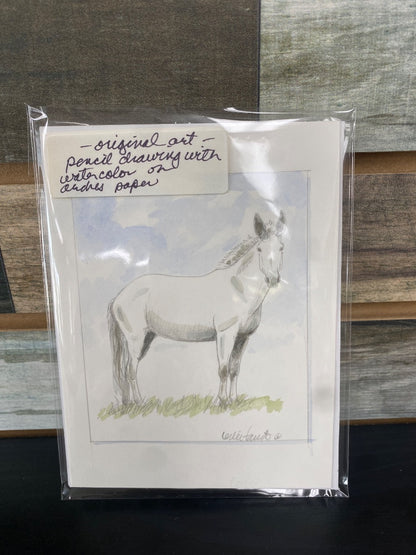 - original art -
pencil drawing with
watercolor on
arches paper